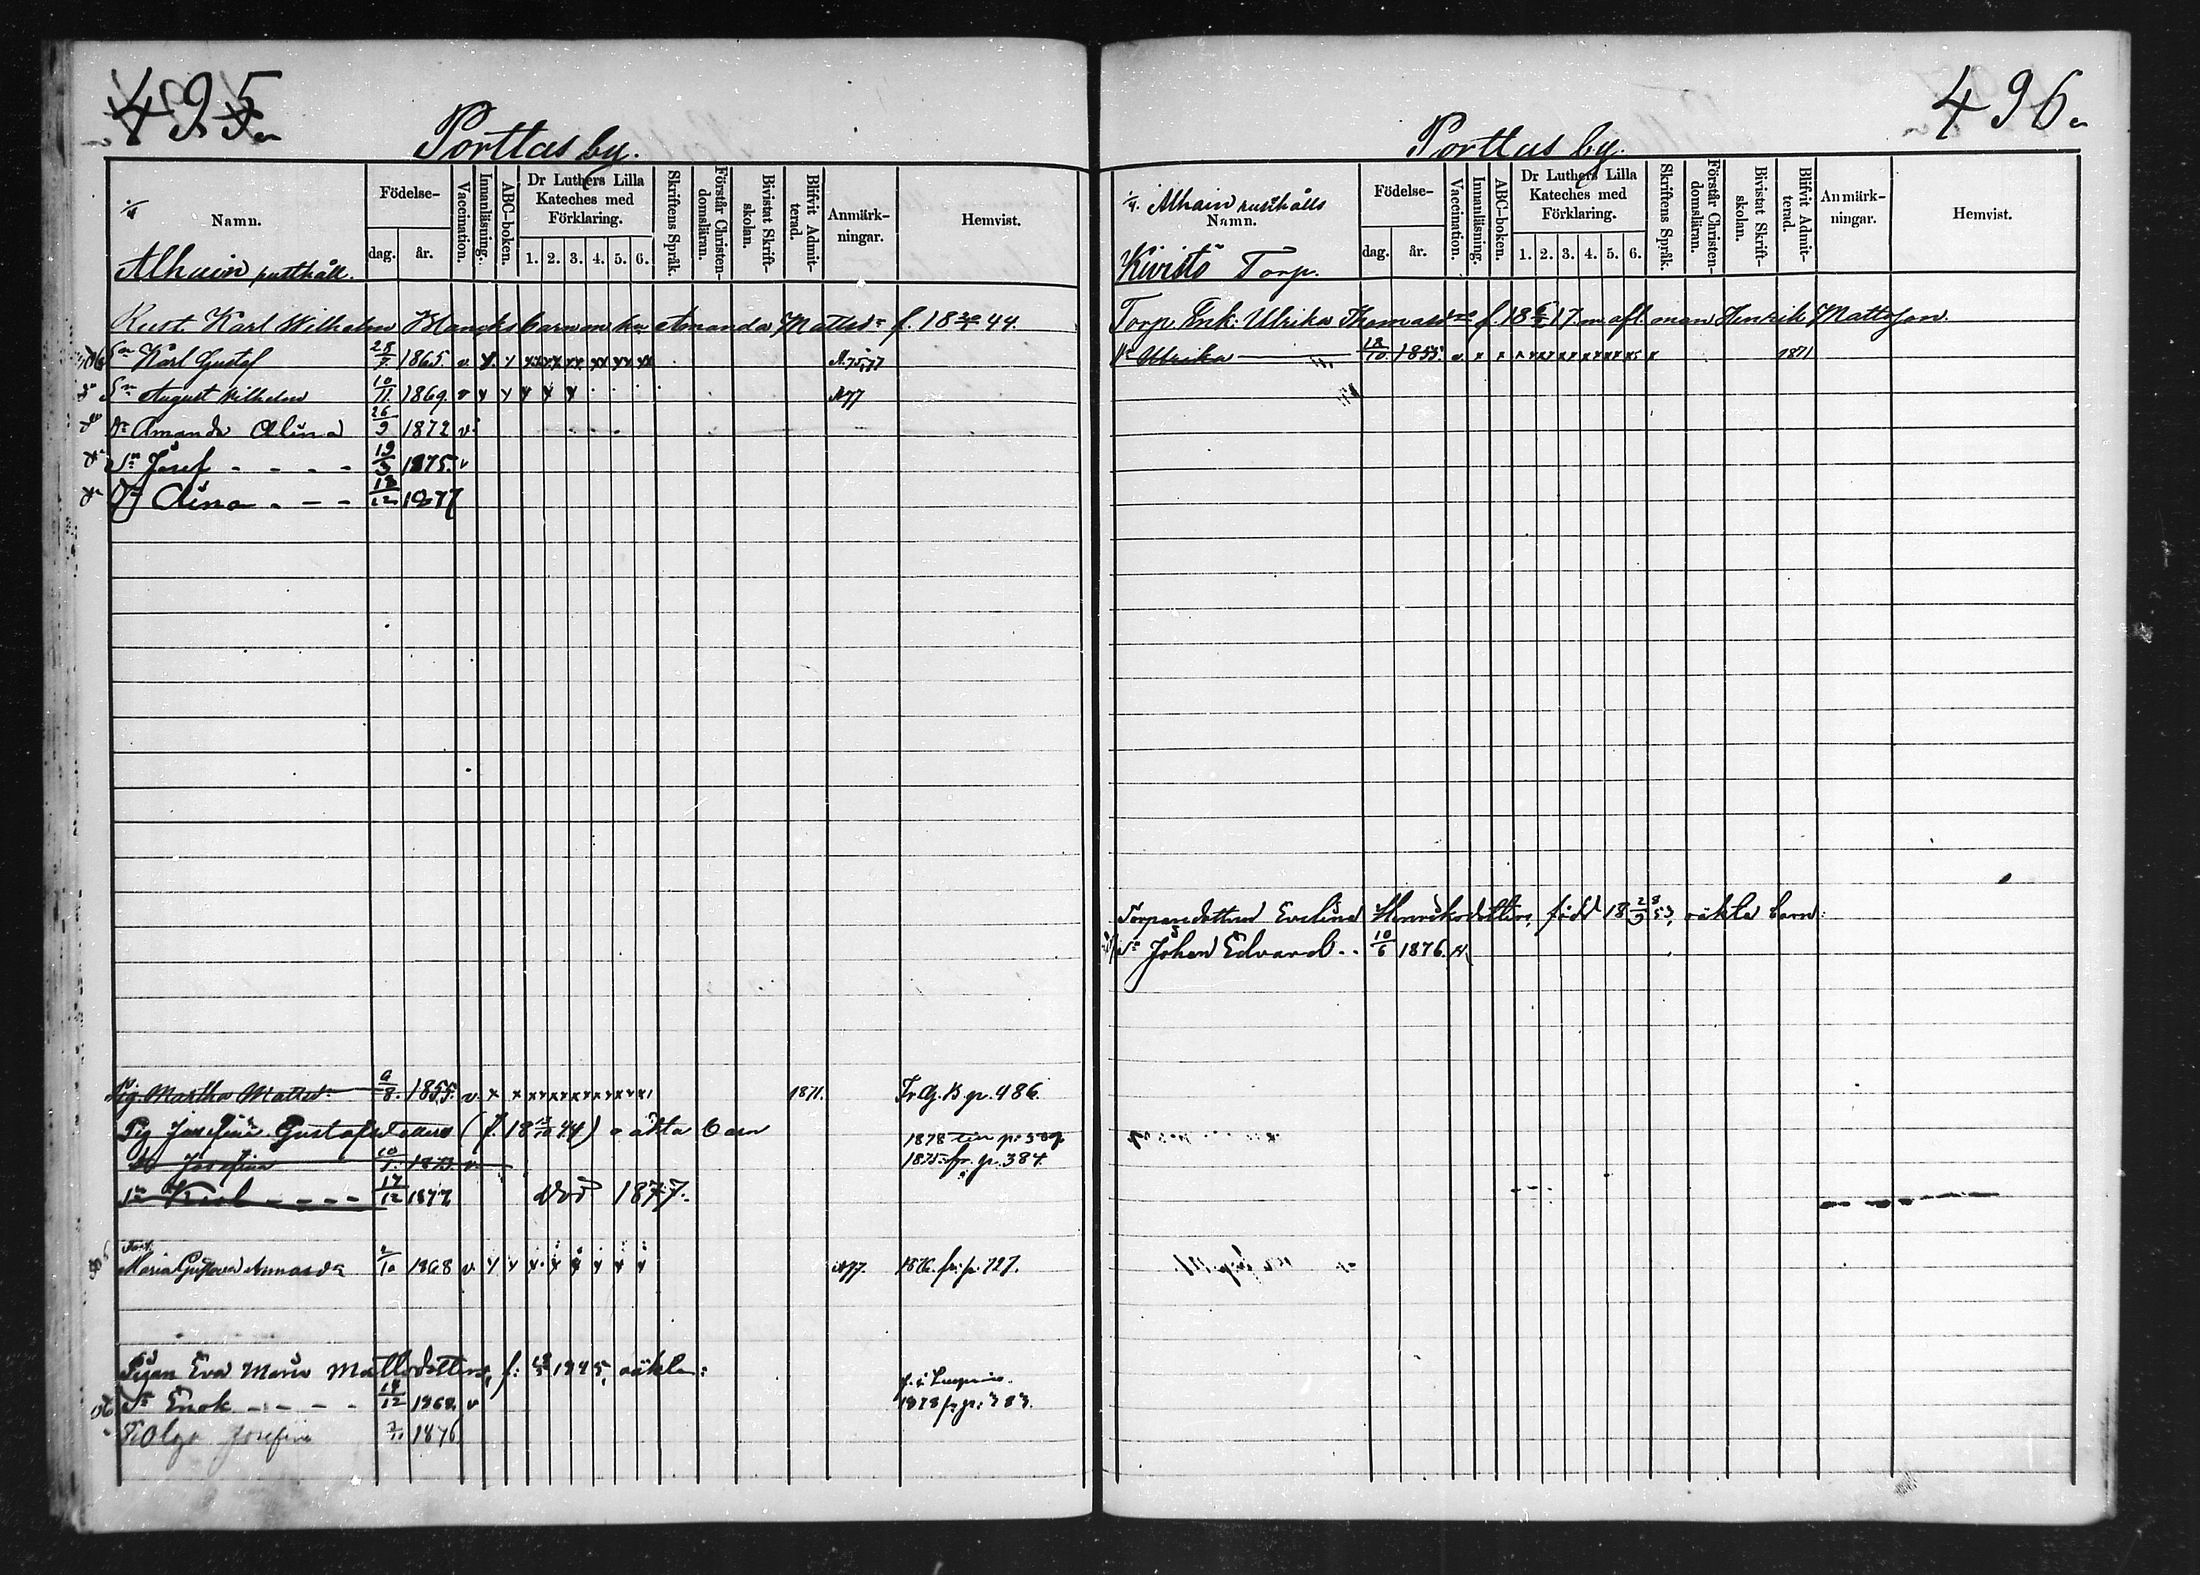 495
Porttas by.
1/4 Namn.
Födelse-
dag. år.
Vaccination.
Innanläsning.
ABC-boken.
Dr Luthers Lilla Kateches med Förklaring.
1. 2. 3. 4. 5. 6.
Skriftens Språk.
Förstår Christen-domsläran.
Bivistat Skrift-skolan.
Blifvit Admit-terad.
Anmärk-ningar.
Hemvist.
Alhain rusthåll.
Rust. Karl Wilhelm barn Amanda Mattsdr f. 18 44.
Sn Karl Gustaf 28/7 1865. v. A. 75, 77
Sn August Wilhelm 10/11 1869. v A 77
Dr Amanda Alina 26/9 1872 v.
Sn Josef - - - - 19/3 1875. v
Dr Aina - - - 12 1877
Pig. Martha Mattsdr 9/8. 1855. v. x x x x x x x x 1871. Fr. G. B. p. 986.
Pig Josefina Gustafsdotters oäkta barn 1878
Dr Josefina 10/1. 1873 v. 1875 fr. p. 384.
Sn Karl - - - - 17/12 1877 död 1877.
Maria Gustava Annasdr 2/10 1868 v. A 77. 1876 fr. p. 727.
Pigan Eva Maria Mattsdotters, f. 1845, oäkta:
Sn Enok - - - - 12 1868. v 1878 fr. p. 383.
Olga Josefina 1876
496.
Porttas by.
1/4. Alhain rusthålls
Namn.
Födelse-
dag. år.
Vaccination.
Innanläsning.
ABC-boken.
Dr Luthers Lilla Kateches med Förklaring.
1. 2. 3. 4. 5. 6.
Skriftens Språk.
Förstår Christen-domsläran.
Bivistat Skrift-skolan.
Blifvit Admit-terad.
Anmärk-ningar.
Hemvist.
Kivistö Torp.
Torp. Enk: Ulrika Thomasdr f. 18 17 m. afl. man Henrik Mattsson.
Dr Ulrika 18/10. 1855. v. x x x x x x x x x 1871
Torparedottren Evelina Henriksdotters, född 18 28/9 53, oäkta barn:
Sn Johan Edvard. . 10/6 1876.